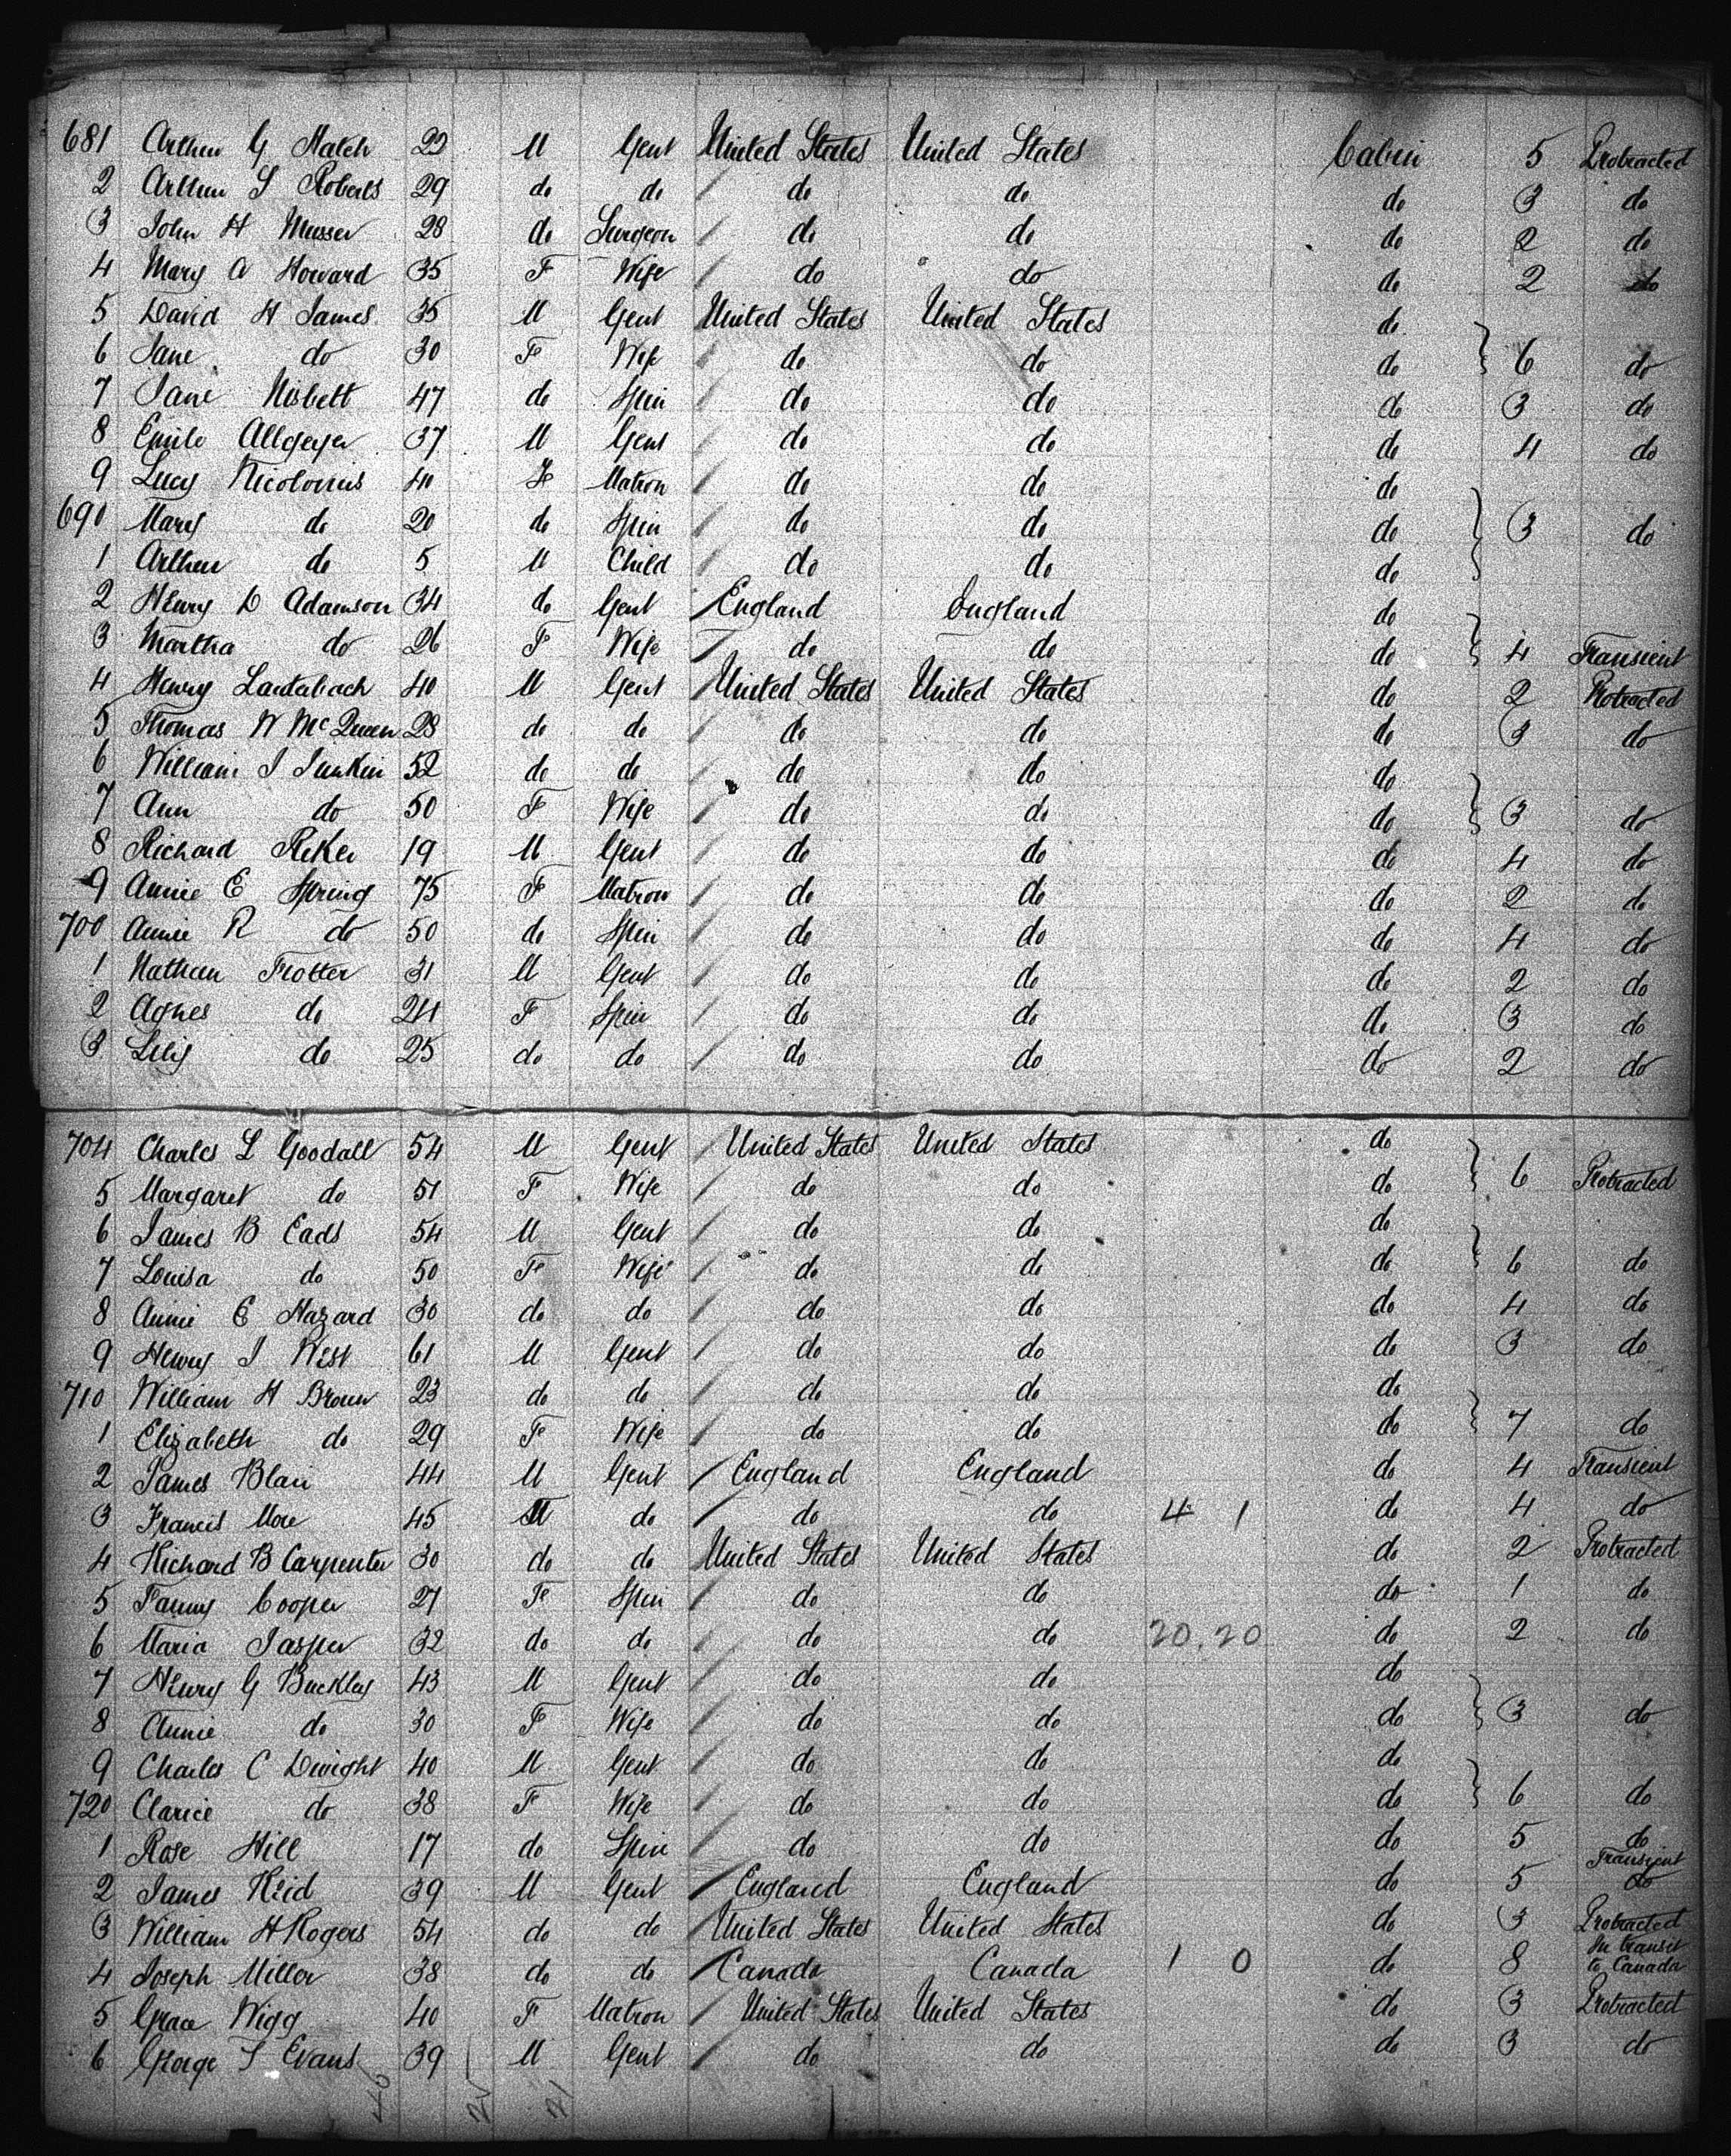 681 Arthur G Hatch 22 M Gent United States United States Cabin 5 Protracted
2 Arthur S Roberts 29 do do do do do 3 do
3 John H Musser 28 do Surgeon do do do 2 do
4 Mary A Howard 35 F Wife do do do 2 do
5 David H James 35 M Gent United States United States do
6 Jane do 30 F Wife do do do 6 do
7 Jane Nisbett 47 do Spin do do do 3 do
8 Emile Allgeyer 37 M Gent do do do 4 do
9 Lucy 40 F Matron do do do
690 Mary do 20 do Spin do do do 3 do
1 Arthur do 5 M Child do do do
2 Henry D Adamson 34 do Gent England England do
3 Martha do 26 F Wife do do do 4 Transient
4 Henry Lauterbach 40 M Gent United States United States do 2 Protracted
5 Thomas W McQueen 28 do do do do do 3 do
6 William J Junkin 52 do do do do do
7 Ann do 50 F Wife do do do 3 do
8 Richard Riker 19 M Gent do do do 4 do
9 Annie E Spring 75 F Matron do do do 2 do
700 Annie R do 50 do Spin do do do 4 do
1 Nathan Trotter 31 M Gent do do do 2 do
2 Agnes do 24 F Spin do do do 3 do
3 do 25 do do do do do 2 do
704 Charles L Goodall 54 M Gent United States United States do
5 Margaret do 51 F Wife do do do 6 Protracted
6 James B Eads 54 M Gent do do do
7 Louisa do 50 F Wife do do do 6 do
8 Annie E Hazard 30 do do do do do 4 do
9 Henry J West 61 M Gent do do do 3 do
710 William H Brown 23 do do do do do
1 Elizabeth do 29 F Wife do do do 7 do
2 James Blair 44 M Gent England England do 4 Transient
3 Francis More 45 M do do do 4 1 do 4 do
4 Richard B Carpenter 30 do do United States United States do 2 Protracted
5 Fanny Cooper 27 F Spin do do do 1 do
6 Maria Jasper 32 do do do do 20.20 do 2 do
7 Henry G Buckley 43 M Gent do do do
8 Annie do 30 F Wife do do do 3 do
9 Charles C Dwight 40 M Gent do do do
720 Clarice do 38 F Wife do do do 6 do
1 Rose Hill 17 do Spin do do do 5 do
2 James Reid 39 M Gent England England do 5 Transient do
3 William H Rogers 54 do do United States United States do 3 Protracted
4 Joseph Miller 38 do do Canada Canada 1 0 do 8 In transit to Canada
5 Grace Wigg 40 F Matron United States United States do 3 Protracted
6 George T Evans 39 M Gent do do do 3 do
46 25 21